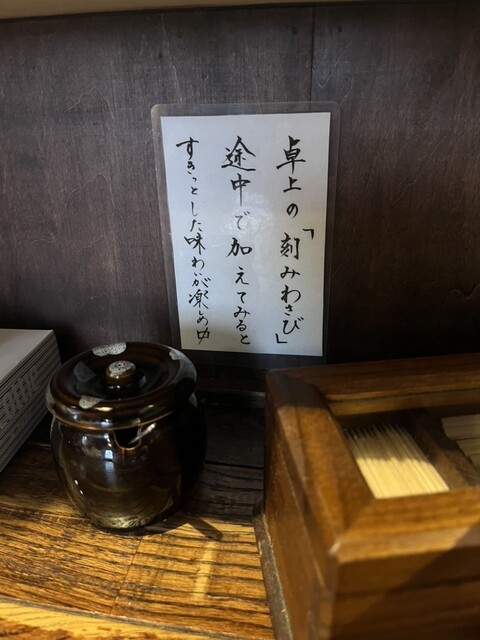 卓上の「刻みわさび」
途中で加えてみると
すきっとした味わいが楽しめます